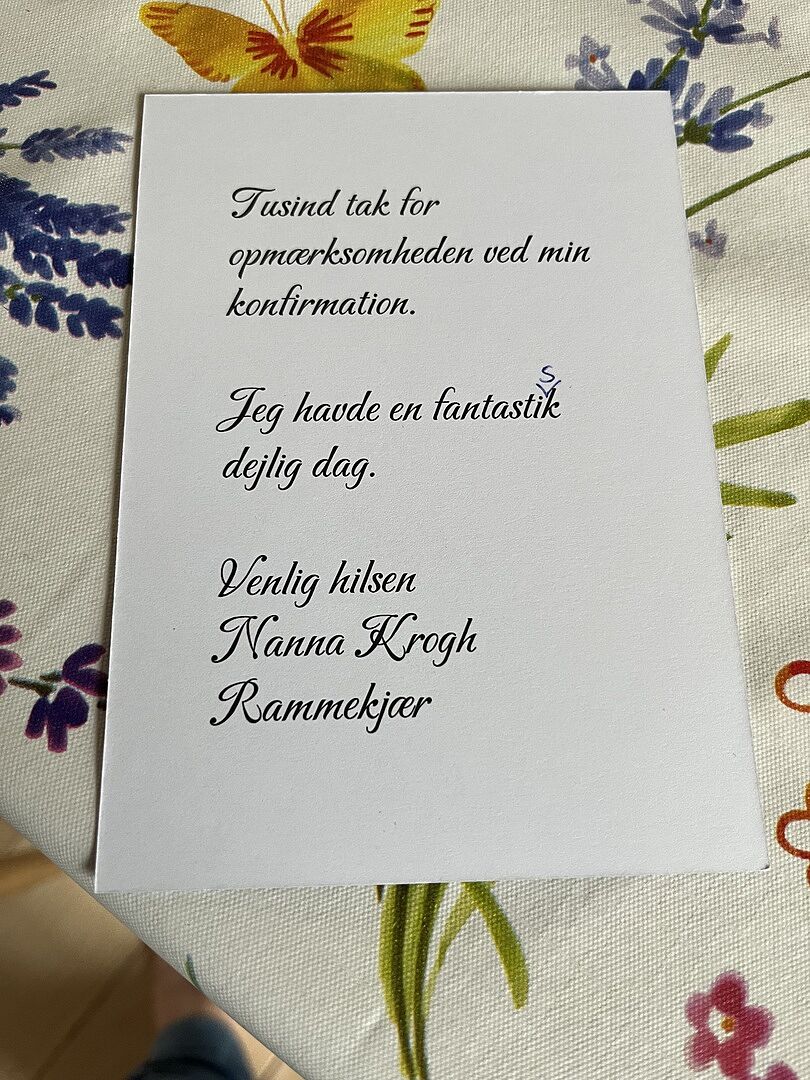 Tusind tak for
opmærksomheden ved min
konfirmation.
s
Jeg havde en fantastik
dejlig dag.
Venlig hilsen
Nanna Krogh
Rammekjær